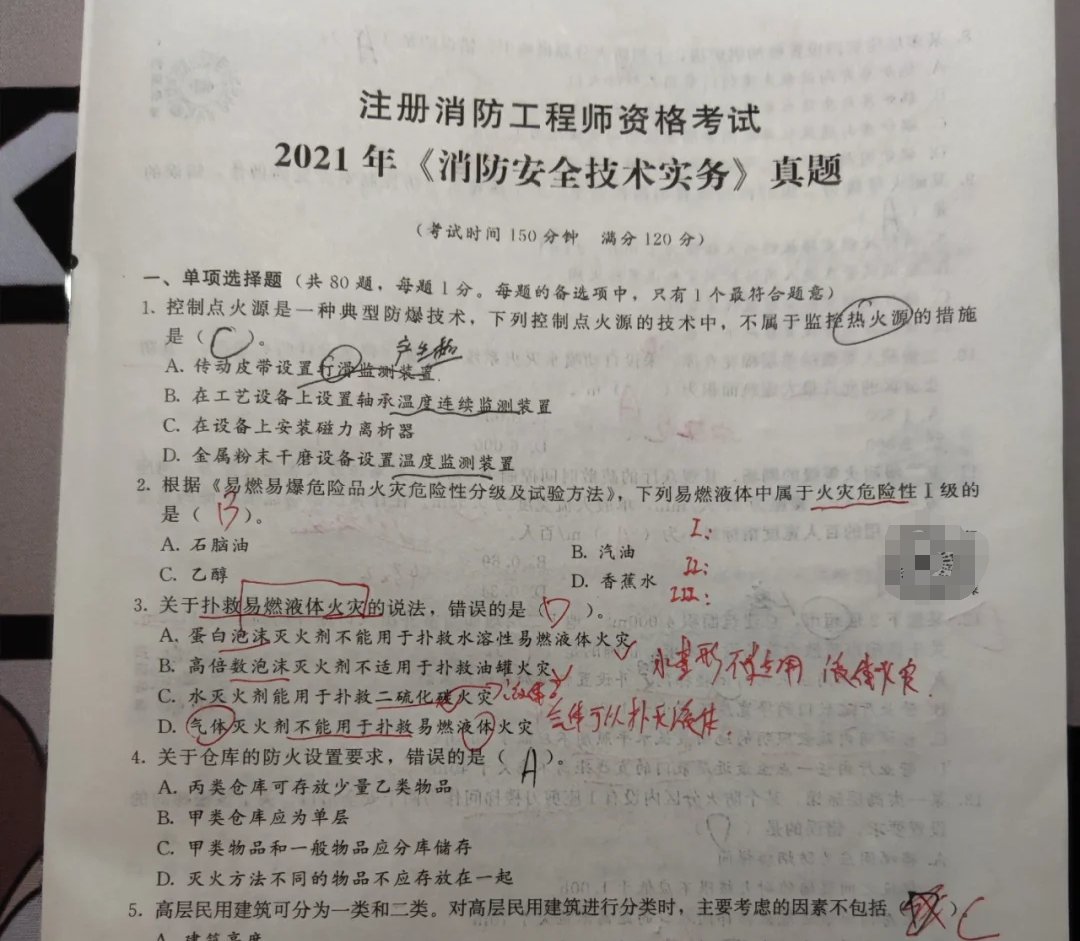 注册消防工程师资格考试
2021年《消防安全技术实务》真题
(考试时间150分钟 满分120分)
一、单项选择题(共80题,每题1分。每题的备选项中,只有1个最符合题意)
1. 控制点火源是一种典型防爆技术,下列控制点火源的技术中,不属于监控热火源的措施
是( C )。
A. 传动皮带设置打滑监测装置
B. 在工艺设备上设置轴承温度连续监测装置
C. 在设备上安装磁力离析器
D. 金属粉末干磨设备设置温度监测装置
2. 根据《易燃易爆危险品火灾危险性分级及试验方法》,下列易燃液体中属于火灾危险性Ⅰ级的
是( B )。
A. 石脑油
B. 汽油
I:
C. 乙醇
D. 香蕉水
II:
III:
3. 关于扑救易燃液体火灾的说法,错误的是( D )。
A. 蛋白泡沫灭火剂不能用于扑救水溶性易燃液体火灾
B. 高倍数泡沫灭火剂不适用于扑救油罐火灾
C. 水灭火剂能用于扑救二硫化碳火灾
液体火灾
D. 气体灭火剂不能用于扑救易燃液体火灾
气体可以扑灭液体
4. 关于仓库的防火设置要求,错误的是( A )。
A. 丙类仓库可存放少量乙类物品
B. 甲类仓库应为单层
C. 甲类物品和一般物品应分库储存
D. 灭火方法不同的物品不应存放在一起
5. 高层民用建筑可分为一类和二类。对高层民用建筑进行分类时,主要考虑的因素不包括( ) C
A. 建筑高度